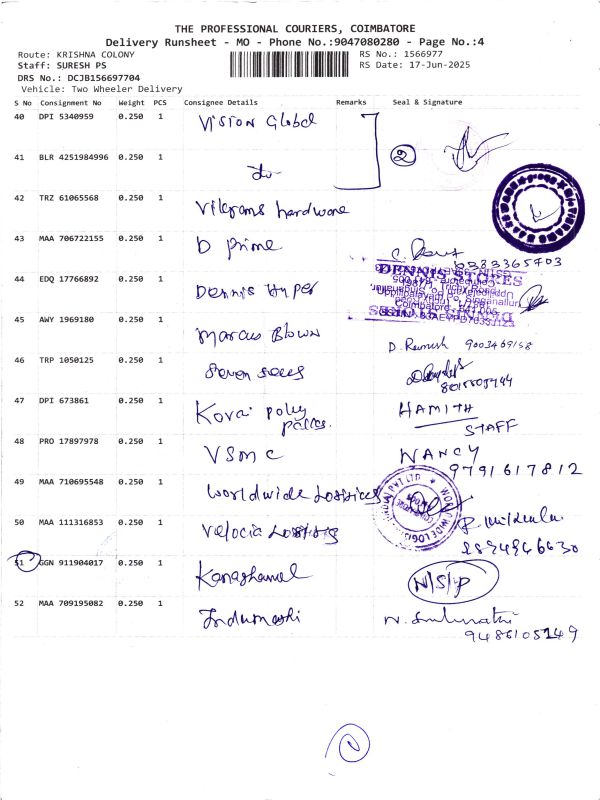 THE PROFESSIONAL COURIERS, COIMBATORE
Delivery Runsheet - MO - Phone No.:9047080280 - Page No.:4
Route: KRISHNA COLONY RS No.: 1566977
Staff: SURESH PS RS Date: 17-Jun-2025
DRS No.: DCJB156697704
Vehicle: Two Wheeler Delivery
S No Consignment No Weight PCS Consignee Details Remarks Seal & Signature
40 DPI 5340959 0.250 1 Vision Global
41 BLR 4251984996 0.250 1 do 2
42 TRZ 61065568 0.250 1 Vikrams hardware
43 MAA 706722155 0.250 1 D Prime
DENNIS STORES
44 EDQ 17766892 0.250 1 Dennis Hyper
45 AWY 1969180 0.250 1 Marcus Blown D. Ramesh 9003469158
46 TRP 1050125 0.250 1 Seven seas
47 DPI 673861 0.250 1 Kovai poly packs. HAMITH
STAFF
48 PRO 17897978 0.250 1 VSMC NANCY
9791617812
49 MAA 710695548 0.250 1 Worldwide Logistics
50 MAA 111316853 0.250 1 Velocia
51 GGN 911904017 0.250 1 N/S/P
52 MAA 709195082 0.250 1 Indumathi
9486105149